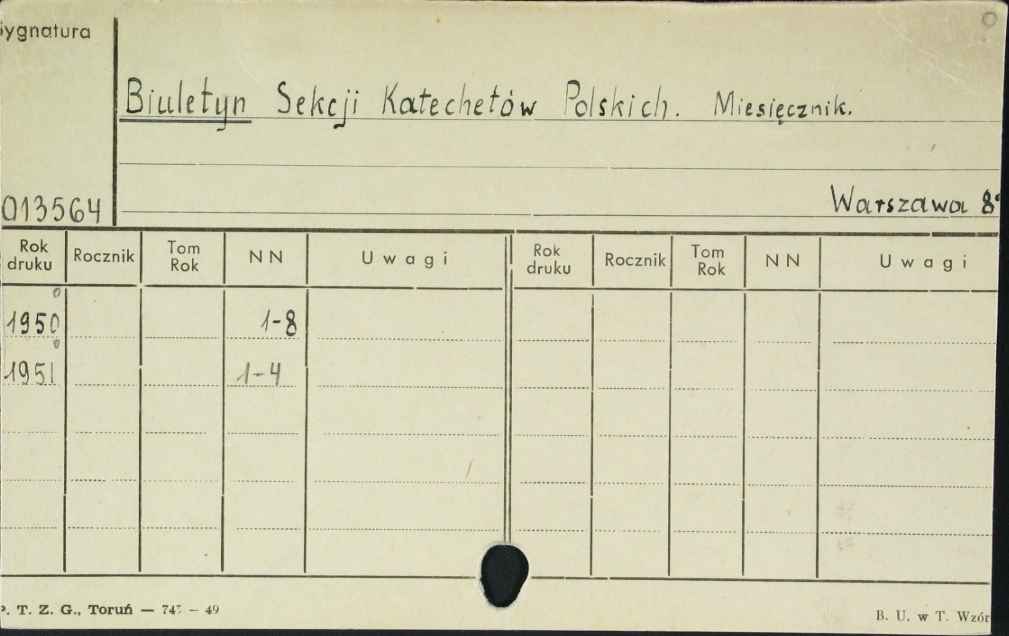 Sygnatura
Biuletyn Sekcji Katechetów Polskich. Miesięcznik.
013564
Warszawa 8°
Rok druku Rocznik Tom Rok NN Uwagi Rok druku Rocznik Tom Rok NN Uwagi
1950 1-8
1951 1-4
P. T. Z. G., Toruń — 747 — 49
B. U. w T. Wzór